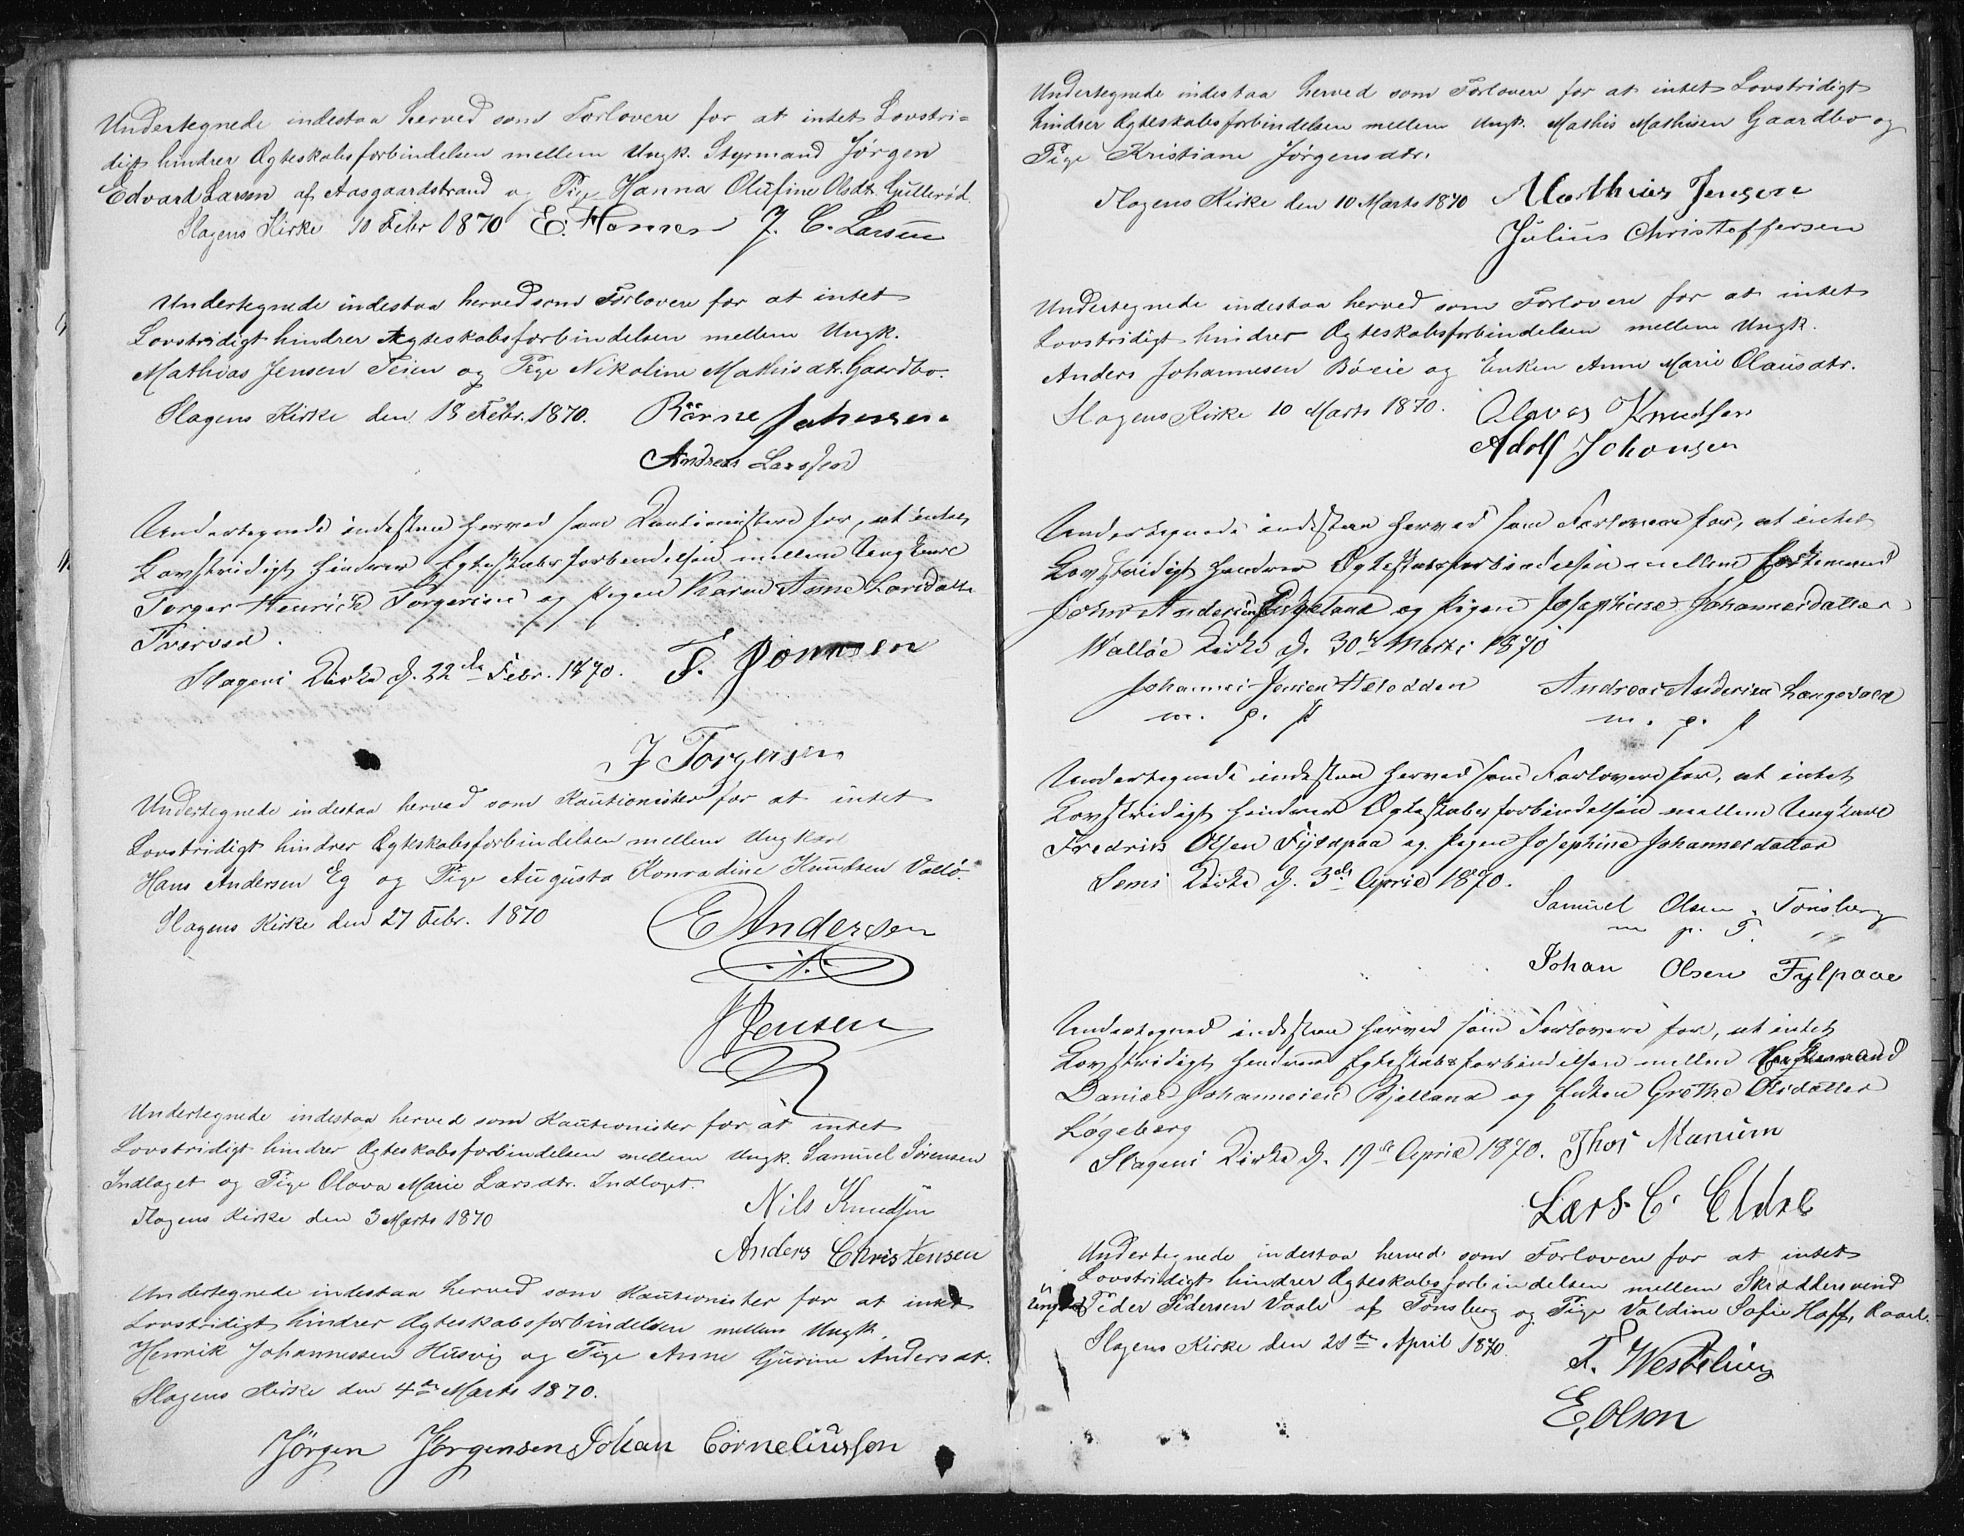 Undertegnede indestaa herved som Forlovere for at intet Lovstri=
digt hindrer Ægteskabsforbindelsen mellem Ungk. Styrmand Jørgen
Edvard Larsen af Aasgaardstrand og Pige Hanna Olufine Olsdt. Gullerød.
Slagens Kirke 10 Febr 1870 E. Hansen J. C. Larsen
Undertegnede indestaa herved som Forlovere for at intet
Lovstridigt hindrer Ægteskabsforbindelsen mellem Ungk.
Mathias Jensen Teien og Pige Nikoline Mathisdt. Gaardbo.
Slagens Kirke den 18 Febr. 1870. Johnsen
Andreas Larssen
Undertegnede indestaa herved som Kautionister for, at intet
Lovstridigt hindrer Egteskabsforbindelsen mellem Ungkarl
Torger Henrich Torgersen og Pigen Karen Anne Larsdatter
Tverved.
Slagens Kirke d. 22de Febr. 1870. F. Jonnsen
J Torgersen
Undertegnede indestaa herved som Kautionister for at intet
Lovstridigt hindrer Ægteskabsforbindelsen mellem Ungkar
Hans Andersen Eg og Pige Augusta Konradine Knudsen Vallø.
Slagens Kirke den 27 Febr. 1870 E Andersen
J Jensen
Undertegnede indestaa herved som Kautionister for at intet
Lovstridigt hindrer Ægteskabsforbindelsen mellem Ungk. Samuel Sørensen
Indlaget og Pige Olava Marie Larsdtr. Indlaget.
Slagens Kirke den 3 Marts 1870 Nils Knudsen
Anders Christensen
Undertegnede indestaa herved som Kautionister for at intet
Lovstridigt hindrer Ægteskabsforbindelsen mellem Ungk.
Henrik Johannessen Husvig og Pige Anne Gurine Andersdt.
Slagens Kirke den 4de Marts 1870.
Jørgen Jørgensen Johan Corneliussen
Undertegnede indestaa herved som Forlovere for at intet Lovstridigt
hindrer Ægteskabsforbindelsen mellem Ungk. Mathis Mathisen Gaardbo og
Pige Kristiane Jørgensdtr.
Slagens Kirke den 10 Marts 1870 Mathias Jensen
Julius Christoffersen
Undertegnede indestaa herved som Forlovere for at intet
Lovstridigt hindrer Ægteskabsforbindelsen mellem Ungk.
Anders Johannesen Bøeie og Enken Anne Marie Olausdtr.
Slagens Kirke 10 Marts 1870. Olaves Knudsen
Adolf Johansen
Undertegnede indestaa herved som Forlovere for, at intet
Lovstridigt hindrer Ægteskabsforbindelsen mellem Enkemand
John Andersen og Pigen Josephine Johannesdatter
Walløe Kirke d. 30te Marts 1870
Johannes Jensen Andreas Andersen
m. p. p m. p. p
Undertegnede indestaa herved som Forlovere for, at intet
Lovstridigt hindrer Ægteskabsforbindelsen mellem Ungkarl
Fredrik Olsen Fyldpaa og Pigen Josephine Johannesdatter
Sems Kirke d. 3de April 1870.
Samuel Olsen, Tønsberg
m p. P.
Johan Olsen Fylpaae
Undertegned indestaa herved som Forlovere for, at intet
Lovstridigt hindrer Egteskabsforbindelsen mellem Enkemand
Daniel Johannesen Bjelland og Enken Grethe Olsdatter
Løgeberg
Slagens Kirke d. 19de April 1870. Thos Manum
Lars C. Eldre
Undertegnede indestaa herved som Forlovere for at intet
Lovstridigt hindrer Ægteskabsforbindelsen mellem Skrædersvend
Peder Pedersen Vaale af Tønsberg og Pige Valdine Sofie Hoff,
Slagens Kirke den 21de April 1870.
E, Olson